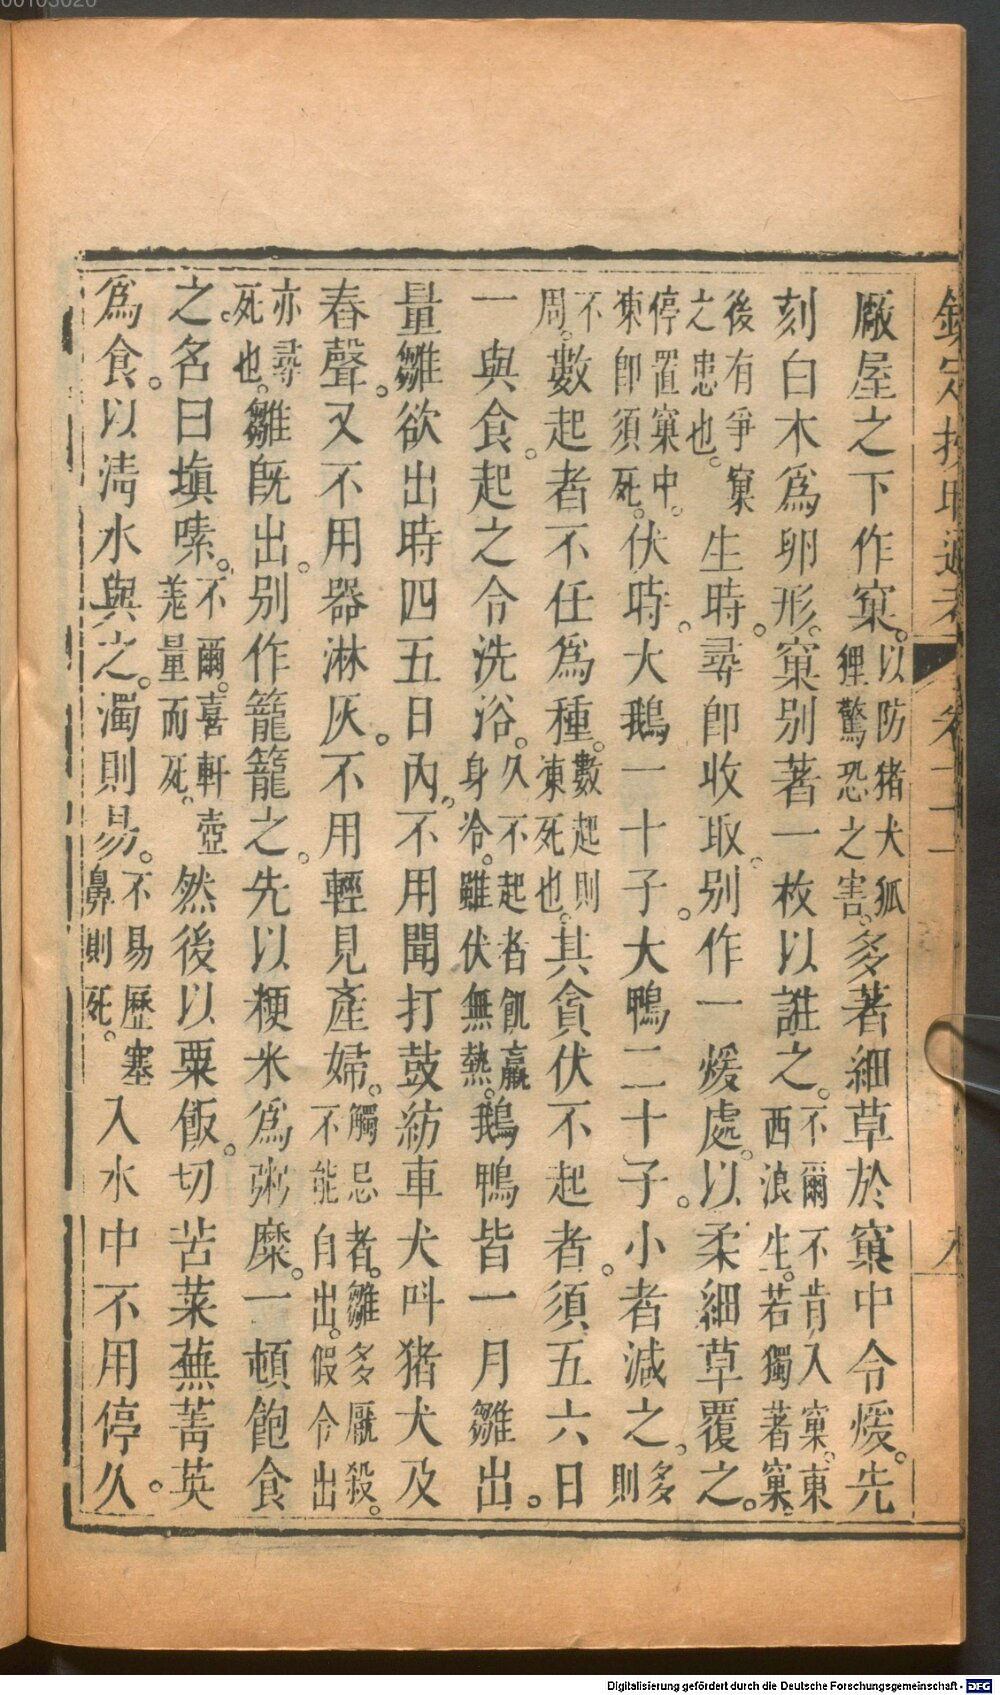 欽定授時通考 卷
廠屋之下作窠。以防猪犬狐狸驚恐之害。多著細草於窠中令煖。先
刻白木爲卵形。窠别著一枚以誑之。不爾不肯入窠。東西浪生。若獨著窠
後有爭窠之患也。生時尋卽收取。别作一煖處。以柔細草覆之。
停置窠中。凍卽須死。伏時。大鵝一十子。大鴨二十子。小者減之。多則
不周。數起者不任爲種。數起則凍死也。其貪伏不起者。須五六日
一與食。起之令洗浴。久不起者飢羸身冷。雖伏無熱。鵝鴨皆一月雛出。
量雛欲出時四五日內。不用聞打鼓紡車犬叫猪犬及
舂聲。又不用器淋灰。不用輕見產婦。觸忌者。雛多厭殺。不能自出。假令出
亦尋死也。雛旣出。别作籠籠之。先以粳米爲粥糜。一頓飽食
之。名曰塡嗉。不爾。喜軒壺羗量而死。然後以粟飯。切苦菜蕪菁英
爲食。以淸水與之。濁則易。不易歷塞鼻則死。入水中不用停久。
Digitalisierung gefördert durch die Deutsche Forschungsgemeinschaft - DFG